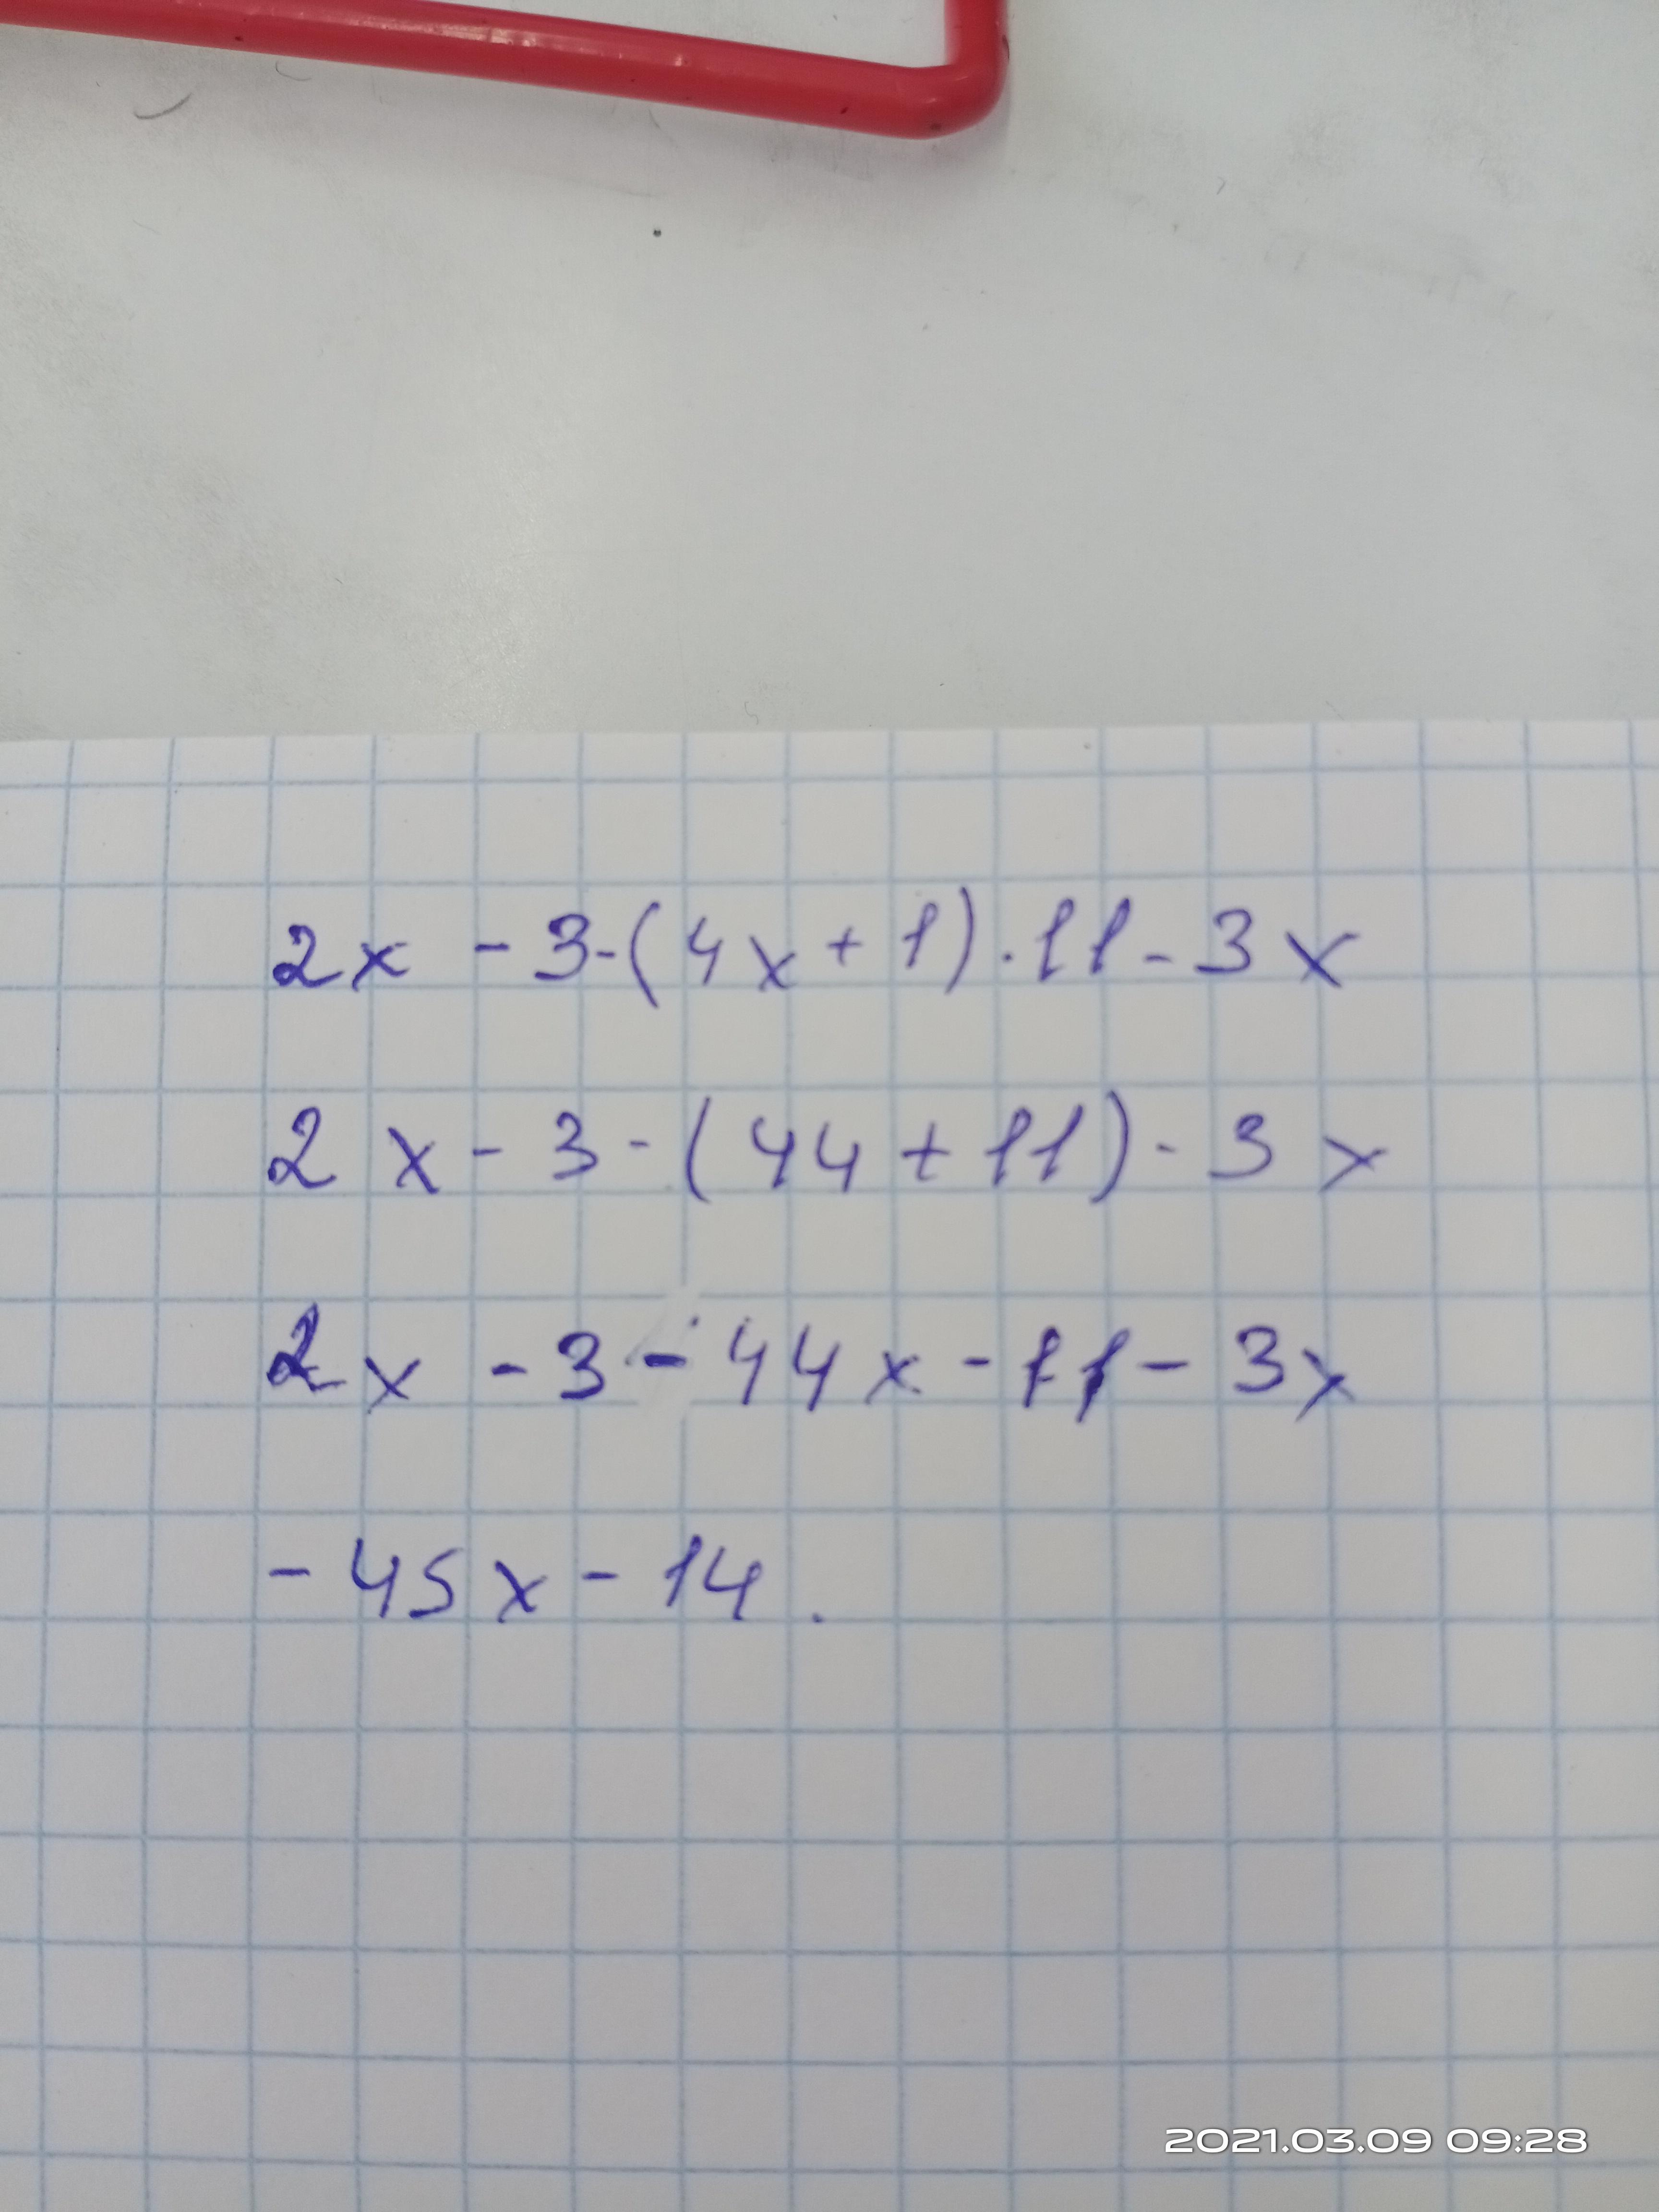 2x - 3 - (4x + 1) · 11 - 3x
2x - 3 - (44 + 11) - 3x
2x - 3 - 44x - 11 - 3x
- 45x - 14.
2021.03.09 09:28